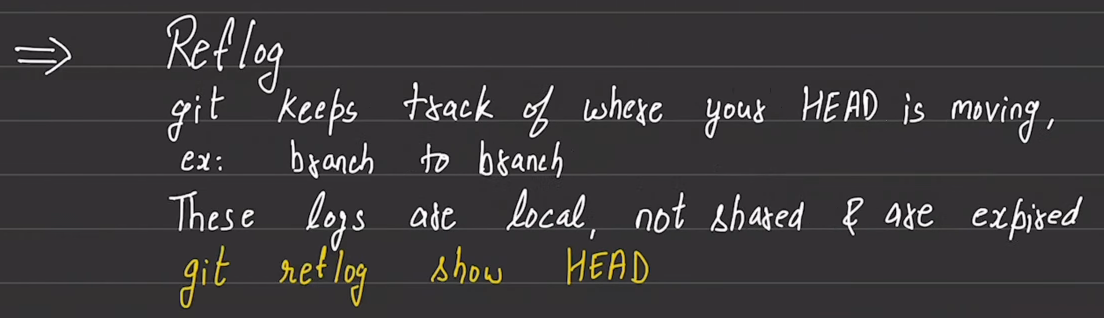 ⇒ Reflog
git keeps track of where your HEAD is moving,
ex: branch to branch
These logs are local, not shared & are expired
git reflog show HEAD